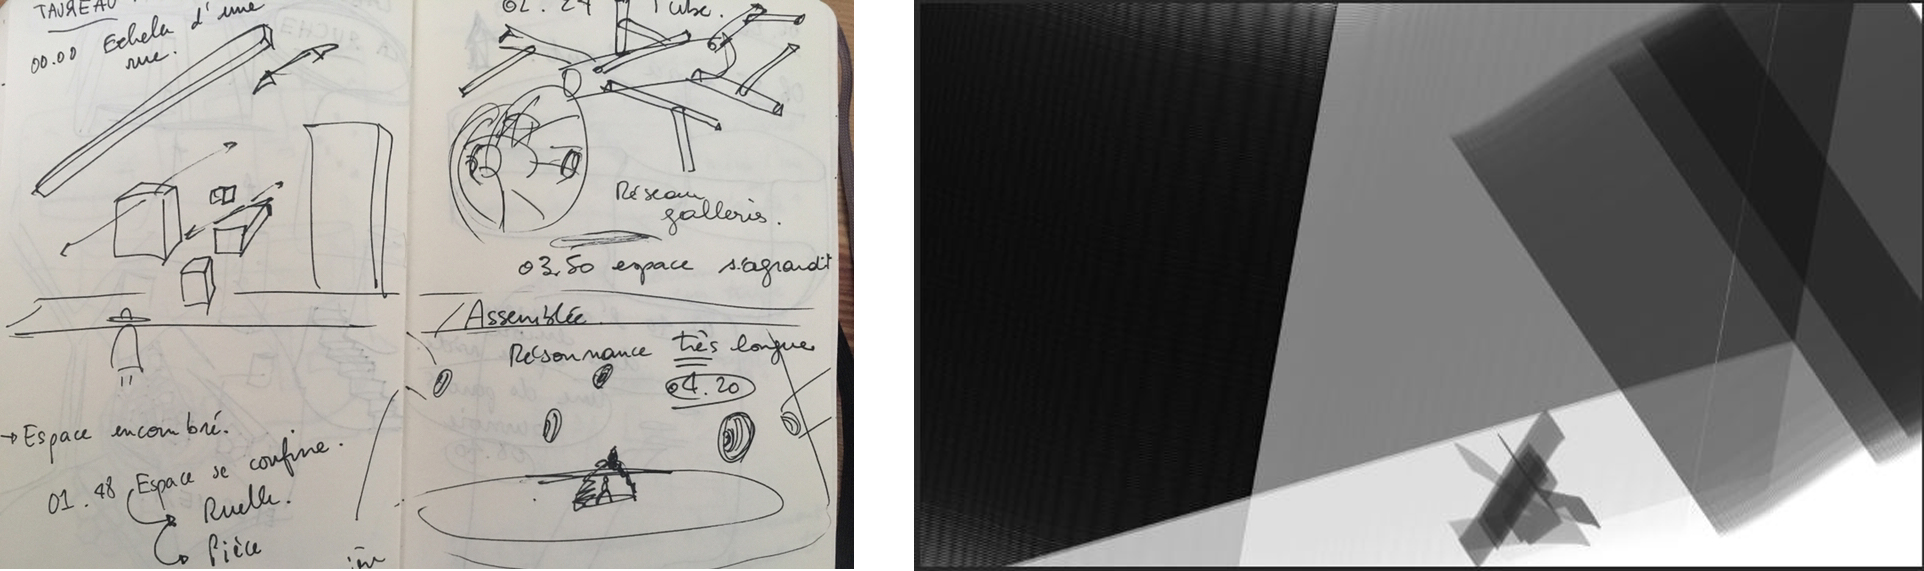 TAUREAU
00.00 Echelle d'une
rue.
→ Espace encombré.
01.48 Espace se confine.
Ruelle.
Pièce
02.27 Tube.
Réseau
galleris.
03.50 espace s'agrandit
Assemblée
Résonnance très longue
04.20